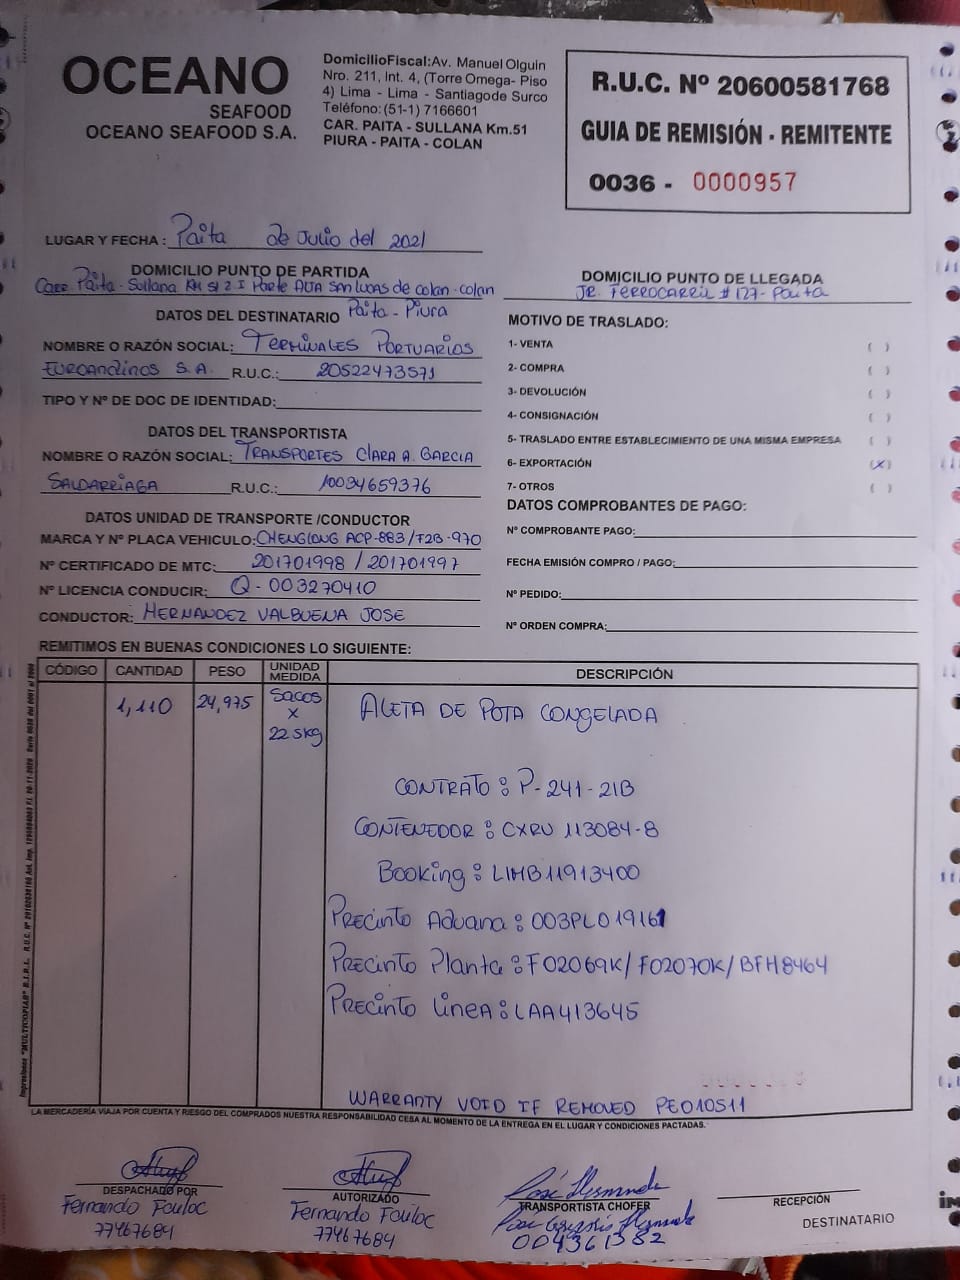 OCEANO
SEAFOOD
OCEANO SEAFOOD S.A.
DomicilioFiscal:Av. Manuel Olguin
Nro. 211, Int. 4, (Torre Omega- Piso
4) Lima - Lima - Santiagode Surco
Teléfono: (51-1) 7166601
CAR. PAITA - SULLANA Km.51
PIURA - PAITA - COLAN
R.U.C. Nº 20600581768
GUIA DE REMISIÓN - REMITENTE
0036 - 0000957
LUGAR Y FECHA : Paita de Julio del 2021
DOMICILIO PUNTO DE PARTIDA
Carr. Paita - Sullana KM 51 2 I Parte Alta San Lucas de colan - colan
Paita - Piura
DOMICILIO PUNTO DE LLEGADA
JR. FERROCARRIL # 127 - Paita
DATOS DEL DESTINATARIO
NOMBRE O RAZÓN SOCIAL: TERMINALES PORTUARIOS
EUROANDINOS S.A. R.U.C.: 20522473571
TIPO Y Nº DE DOC DE IDENTIDAD:
DATOS DEL TRANSPORTISTA
NOMBRE O RAZÓN SOCIAL: TRANSPORTES CLARA A. GARCIA
SALDARRIAGA R.U.C.: 10034659376
DATOS UNIDAD DE TRANSPORTE /CONDUCTOR
MARCA Y Nº PLACA VEHICULO: CHENGLONG ACP-883/F2B-970
Nº CERTIFICADO DE MTC: 201701998 / 201701997
Nº LICENCIA CONDUCIR: Q-003270410
CONDUCTOR: HERNANDEZ VALBUENA JOSE
MOTIVO DE TRASLADO:
1- VENTA ( )
2- COMPRA ( )
3- DEVOLUCIÓN ( )
4- CONSIGNACIÓN ( )
5- TRASLADO ENTRE ESTABLECIMIENTO DE UNA MISMA EMPRESA ( )
6- EXPORTACIÓN (X)
7- OTROS ( )
DATOS COMPROBANTES DE PAGO:
Nº COMPROBANTE PAGO:
FECHA EMISIÓN COMPRO / PAGO:
Nº PEDIDO:
Nº ORDEN COMPRA:
REMITIMOS EN BUENAS CONDICIONES LO SIGUIENTE:
CÓDIGO CANTIDAD PESO UNIDAD MEDIDA DESCRIPCIÓN
1,110 24,975 Sacos x 22.5kg ALETA DE POTA CONGELADA
CONTRATO : P-241-21B
CONTENEDOR : CXRU 113084-8
Booking : LIMB11913400
Precinto Aduana : 003PL019161
Precinto Planta : F02069K/F02070K/BFH8464
Precinto Linea : LAA413645
WARRANTY VOID IF REMOVED PE010511
LA MERCADERÍA VIAJA POR CUENTA Y RIESGO DEL COMPRADOS NUESTRA RESPONSABILIDAD CESA AL MOMENTO DE LA ENTREGA EN EL LUGAR Y CONDICIONES PACTADAS.
DESPACHADO POR
Fernando Fouloc
77467684
AUTORIZADO
Fernando Fouloc
77467684
TRANSPORTISTA CHOFER
004361382
RECEPCIÓN
DESTINATARIO